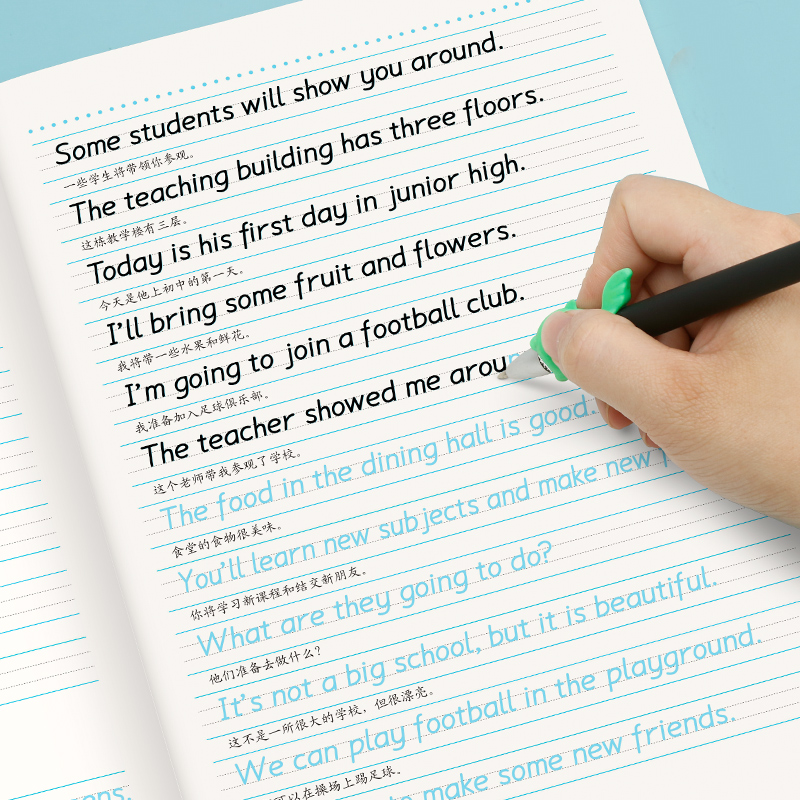 Some students will show you around.
一些学生将带领你参观。
The teaching building has three floors.
这栋教学楼有三层。
Today is his first day in junior high.
今天是他上初中的第一天。
I'll bring some fruit and flowers.
我将带一些水果和鲜花。
I'm going to join a football club.
我准备加入足球俱乐部。
The teacher showed me arou
这个老师带我参观了学校。
The food in the dining hall is good.
食堂的食物很美味。
You'll learn new subjects and make new
你将学习新课程和结交新朋友。
What are they going to do?
他们准备去做什么?
It's not a big school, but it is beautiful.
这不是一所很大的学校,但很漂亮。
We can play football in the playground.
可以在操场上踢足球。
make some new friends.